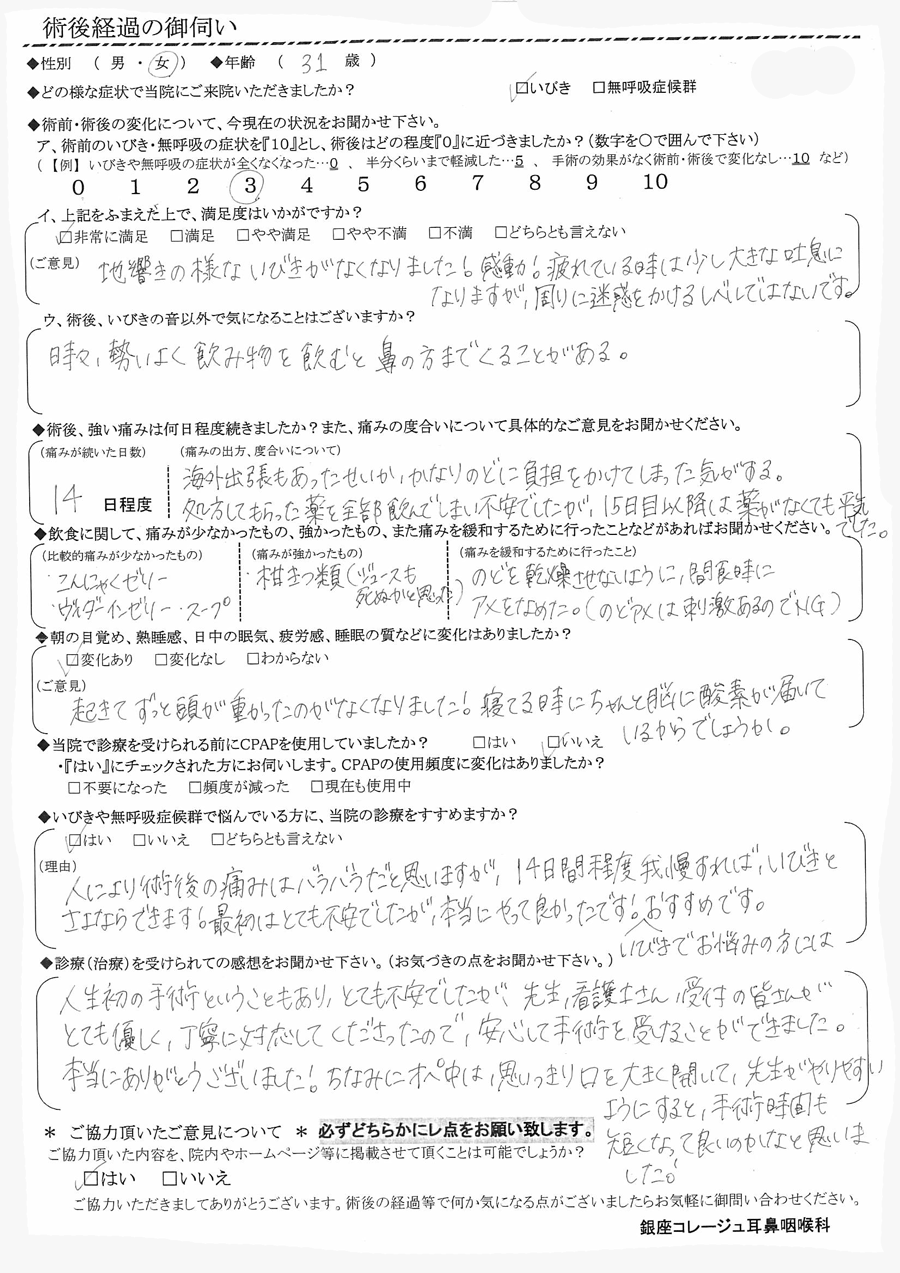 術後経過の御伺い
◆性別 ( 男 ・ 女 ) ◆年齢 ( 31 歳 )
◆どの様な症状で当院にご来院いただきましたか? □いびき □無呼吸症候群
◆術前・術後の変化について、今現在の状況をお聞かせ下さい。
ア、術前のいびき・無呼吸の症状を『10』とし、術後はどの程度『0』に近づきましたか?(数字を〇で囲んで下さい)
(【例】いびきや無呼吸の症状が全くなくなった…0 、 半分くらいまで軽減した…5 、 手術の効果がなく術前・術後で変化なし…10 など)
0 1 2 3 4 5 6 7 8 9 10
イ、上記をふまえた上で、満足度はいかがですか?
□非常に満足 □満足 □やや満足 □やや不満 □不満 □どちらとも言えない
(ご意見) 地響きの様ないびきがなくなりました!感動!疲れている時は少し大きな吐息に
なりますが、周りに迷惑をかけるレベルではないです。
ウ、術後、いびきの音以外で気になることはございますか?
時々、勢いよく飲み物を飲むと鼻の方までくることがある。
◆術後、強い痛みは何日程度続きましたか?また、痛みの度合いについて具体的なご意見をお聞かせください。
(痛みが続いた日数) (痛みの出方、度合いについて)
海外出張もあったせいか、かなりのどに負担をかけてしまった気がする。
14 日程度 処方してもらった薬を全部飲んでしまい不安でしたが、15日目以降は薬がなくても平気
でした。
◆飲食に関して、痛みが少なかったもの、強かったもの、また痛みを緩和するために行ったことなどがあればお聞かせください。
(比較的痛みが少なかったもの) (痛みが強かったもの) (痛みを緩和するために行ったこと)
・こんにゃくゼリー ・柑きつ類(ジュースも のどを乾燥させないように、間食時に
・ウィダーインゼリー ・スープ 死ぬかと思った) アメをなめた。(のどアメは刺激あるのでNG)
◆朝の目覚め、熟睡感、日中の眠気、疲労感、睡眠の質などに変化はありましたか?
□変化あり □変化なし □わからない
(ご意見)
起きてずっと頭が重かったのがなくなりました!寝てる時にちゃんと脳に酸素が届いて
いるからでしょうか。
◆当院で診療を受けられる前にCPAPを使用していましたか? □はい □いいえ
・『はい』にチェックされた方にお伺いします。CPAPの使用頻度に変化はありましたか?
□不要になった □頻度が減った □現在も使用中
◆いびきや無呼吸症候群で悩んでいる方に、当院の診療をすすめますか?
□はい □いいえ □どちらとも言えない
(理由)
人により術後の痛みはバラバラだと思いますが、14日間程度我慢すれば、いびきと
サヨナラできます!最初はとても不安でしたが、本当にやって良かったです!おすすめです。
いびきでお悩みの方には
◆診療(治療)を受けられての感想をお聞かせ下さい。(お気づきの点をお聞かせ下さい。)
人生初の手術ということもあり、とても不安でしたが、先生、看護士さん、受付の皆さんが
とても優しく、丁寧に対応してくださったので、安心して手術を受けることができました。
本当にありがとうございました!ちなみにオペ中は、思いっきり口を大きく開いて、先生がやりやすい
ようにすると、手術時間も
短くなって良いのかなと思いま
した。
* ご協力頂いたご意見について * 必ずどちらかにレ点をお願い致します。
ご協力頂いた内容を、院内やホームページ等に掲載させて頂くことは可能でしょうか?
□はい □いいえ
ご協力いただきましてありがとうございます。術後の経過等で何か気になる点がございましたらお気軽に御問い合わせください。
銀座コレージュ耳鼻咽喉科